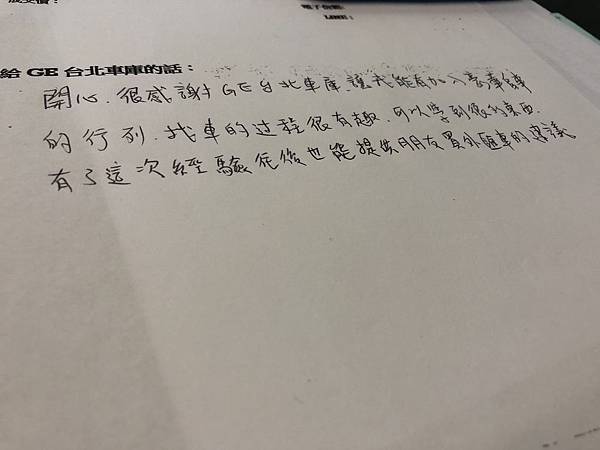 成交價：
電子信箱：
LINE：
給 GE 台北車庫的話：
開心、很感謝 GE台北車庫、讓我能夠加入豪華錶
的行列、找車的过程很有趣、可以學到很多東西、
有了這次經驗往後也能提供朋友買外匯車的建議。